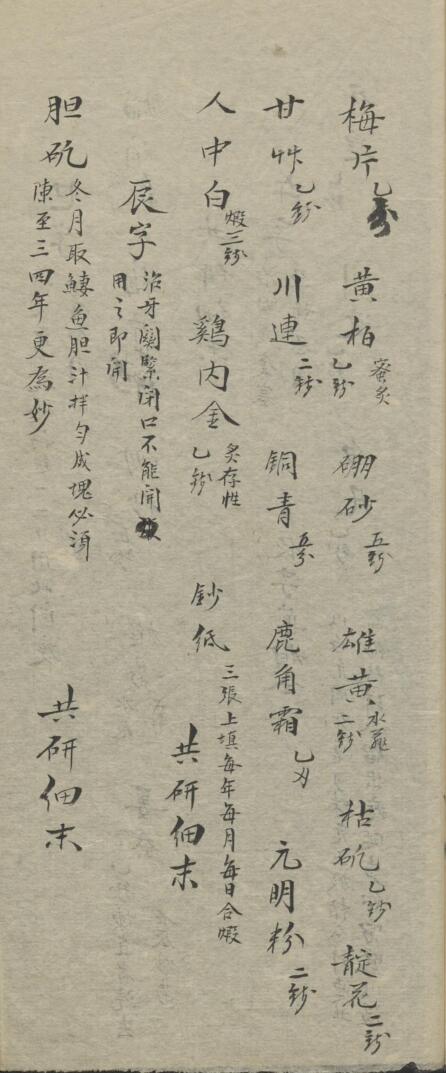 梅片乙分 黄柏蜜炙乙錢 硼砂五錢 雄黄水飛二錢 枯矾乙錢 靛花二錢
甘艸乙錢 川連二錢 铜青五分 鹿角霜乙刄 元明粉二錢
人中白煅三錢 鷄内金炙存性乙錢 鈔纸三張上填每年每月每日合煅 共研细末
辰字 治牙關緊闭口不能開
用之即開
胆矾 冬月取鯚鱼胆汁拌匀成塊必須
陳至三四年更為妙 共研细末